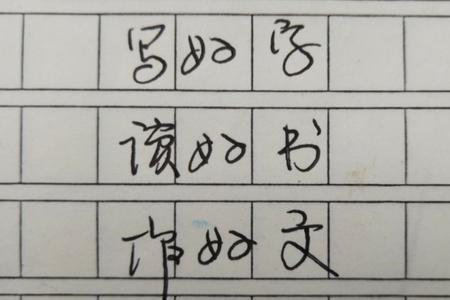 写好字
读好书
作好文